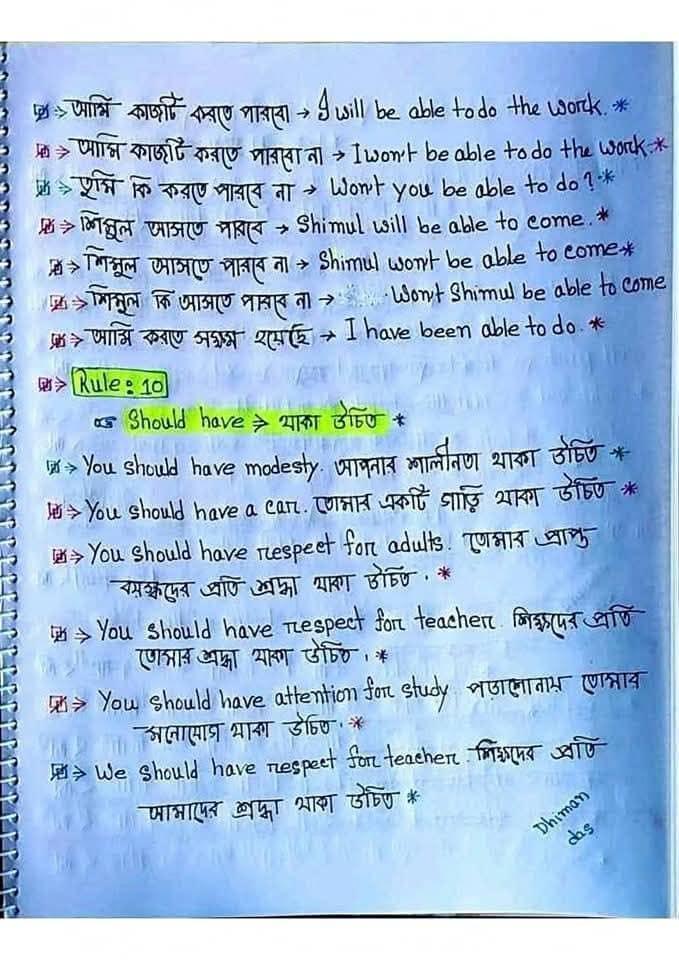 আমি কাজটি করতে পারবো → I will be able to do the work. *
আমি কাজটি করতে পারবো না → I won't be able to do the work.*
তুমি কি করতে পারবে না → Won't you be able to do? *
শিমুল আসতে পারবে → Shimul will be able to come. *
শিমুল আসতে পারবে না → Shimul won't be able to come*
শিমুল কি আসতে পারবে না → Won't Shimul be able to come
আমি করতে সক্ষম হয়েছি → I have been able to do. *
Rule: 10
☞ Should have ⇒ থাকা উচিত *
⇒ You should have modesty. আপনার শালীনতা থাকা উচিত *
⇒ You should have a car. তোমার একটি গাড়ি থাকা উচিত *
⇒ You should have respect for adults. তোমার প্রাপ্ত
বয়স্কদের প্রতি শ্রদ্ধা থাকা উচিত. *
⇒ You should have respect for teacher. শিক্ষদের প্রতি
তোমার শ্রদ্ধা থাকা উচিত. *
⇒ You should have attention for study. পড়ালোনায় তোমার
মনোযোগ থাকা উচিত. *
⇒ We should have respect for teacher. শিক্ষদের প্রতি
আমাদের শ্রদ্ধা থাকা উচিত *
Dhiman
das